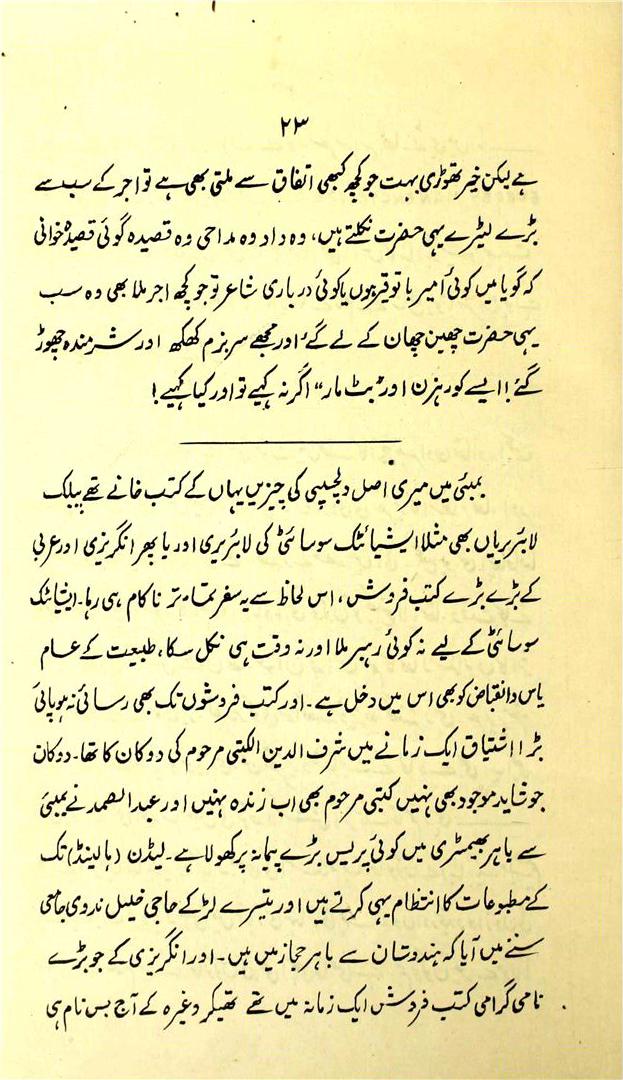 ۲۳
ہے لیکن خیر تھوڑی بہت جو کچھ کبھی اتفاق سے ملتی بھی ہے تو اجر کے سب سے
بڑے لیٹرے یہی حضرت نکلتے ہیں، وہ داد وہ مداحی وہ قصیدہ گوئی قصیدہ خوانی
کہ گویا میں کوئی امیر با توقیر ہوں یا کوئی درباری شاعر تو جو کچھ اجر ملا بھی وہ سب
یہی حضرت چھین چھان کے لے گئے اور مجھے سر بزم کھکھ اور شرمندہ چھوڑ
گئے! ایسے کو رہزن اور "بٹ مار" اگر نہ کہیے تو اور کیا کہیے!
بمبئی میں میری اصل دلچسپی کی چیزیں یہاں کے کتب خانے تھے پبلک
لائبریریاں بھی مثلا ایشیاٹک سوسائٹی کی لائبریری اور یا پھر انگریزی اور عربی
کے بڑے بڑے کتب فروش، اس لحاظ سے یہ سفر تمام تر ناکام ہی رہا۔ ایشیاٹک
سوسائٹی کے لیے نہ کوئی رہبر ملا اور نہ وقت ہی نکل سکا، طبیعت کے عام
یاس و انقباض کو بھی اس میں دخل ہے۔ اور کتب فروشوں تک بھی رسائی نہ ہو پائی
بڑا اشتیاق ایک زمانے میں شرف الدین الکتبی مرحوم کی دوکان کا تھا۔ دوکان
جو شاید موجود بھی نہیں کتبی مرحوم بھی اب زندہ نہیں اور عبدالصمد نے بمبئی
سے باہر بھیمڑی میں کوئی پریس بڑے پیمانہ پر کھولا ہے۔ لیڈن (ہالینڈ) تک
کے مطبوعات کا انتظام یہی کرتے ہیں اور تیسرے لڑکے حاجی خلیل ندوی جامعی
سننے میں آیا کہ ہندوستان سے باہر حجاز میں ہیں۔ اور انگریزی کے جو بڑے
نامی گرامی کتب فروش ایک زمانہ میں تھے تھیکر وغیرہ کے آج بس نام ہی